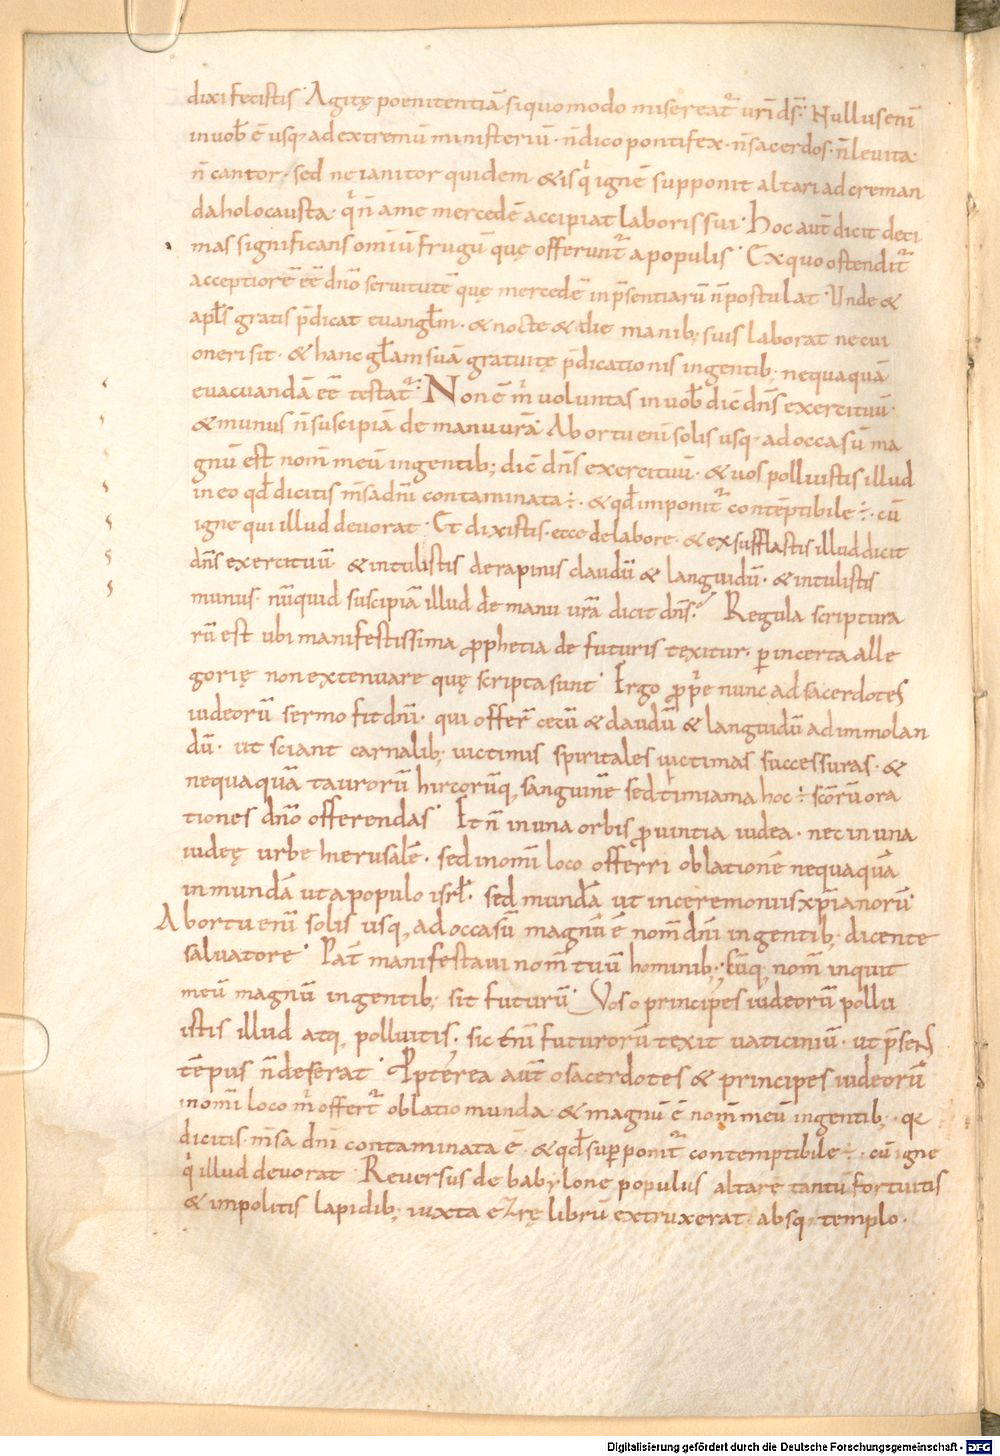 dixi fecistis. Agitę poenitentiā si quomodo misereat᷑ vr̄i dſ̄. Nullus enī
in vob̄ ē usq; ad extremū ministeriū. n̄ dico pontifex. n̄ sacerdos. n̄ levita
n̄ cantor. sed ne ianitor quidem & is q̇ ignē supponit altari ad creman
da holocausta. q̇ n̄ a me mercedē accipiat laboris sui. Hoc aut̄ dicit deci
mas significans omīu frugū quę offerunt᷑ a populis. Ex quo ostendit᷑
acceptiorē eē dn̄o servitutē quę mercedē in p̄sentiarū n̄ postulat. Unde &
apl̄s gratis p̄dicat evangl̄m. & nocte & die manib; suis laborat ne cui
oneri sit. & hanc gl̄am suā gratuitę p̄dicationis in gentib; nequaquā
evacuandā eē testat᷑. Non ē ṁ voluntas in vob̄ dic̄ dn̄s exercituū.
& munus n̄ suscipiā de manu vr̄a. Ab ortu enī solis usq; ad occasū ma
gnū est nom̄ meū in gentib; dic̄ dn̄s exercituū. & vos polluistis illud
in eo qd̄ dicitis m̄sa dn̄i contaminata ÷. & qd̄ imponit᷑ contēptibile ÷. cū
igne qui illud devorat. Et dixistis. ecce de labore. & exsufflastis illud dicit
dn̄s exercituū. & intulistis de rapinis claudū & languidū. & intulistis
munus. nūquid suscipiā illud de manu vr̄a dicit dn̄s? Regula scriptura
rū est ubi manifestissima prophetia de futuris texitur. p̱ incerta alle
gorię non extenuare quę scripta sunt. Ergo prop̄e nunc ad sacerdotes
iudeorū sermo fit dn̄i. qui offer̄ cecū & claudū & languidū ad immolan
dū. ut sciant carnalib; victimis spiritales victimas successuras. &
nequaquā taurorū hircorūq; sanguinē sed timiama hoc ÷ sc̄orū ora
tiones dn̄o offerendas. Et n̄ in una orbis provintia iudea. nec in una
iudeę urbe hierusalē. sed in om̄i loco offerri oblationē nequaquā
inmundā ut a populo isrl̄. sed mundā ut in ceremoniis xp̄ianorū.
Ab ortu enī solis usq; ad occasū magnū ē nom̄ dn̄i in gentib; dicente
salvatore. Pat̄ manifestavi nom̄ tuū hominib;. Cūq; nom̄ inquit
meū magnū in gentib; sit futurū. Vos o principes iudeorū pollu
istis illud atq; polluitis. sic enī futurorū texit vaticiniū. ut p̄sens
tēpus n̄ deserat. Propterea aut̄ o sacerdotes & principes iudeorū
in om̄i loco ṁ offert᷑ oblatio munda. & magnū ē nom̄ meū in gentib;. q̄
dicitis. m̄sa dn̄i contaminata ē. & qd̄ supponit᷑ contemptibile ÷. cū igne
q̇ illud devorat. Reversus de babylone populus altarę tantū fortuitis
& impolitis lapidib; iuxta ezrę librū extruxerat. absq; templo.
Digitalisierung gefördert durch die Deutsche Forschungsgemeinschaft - DFG